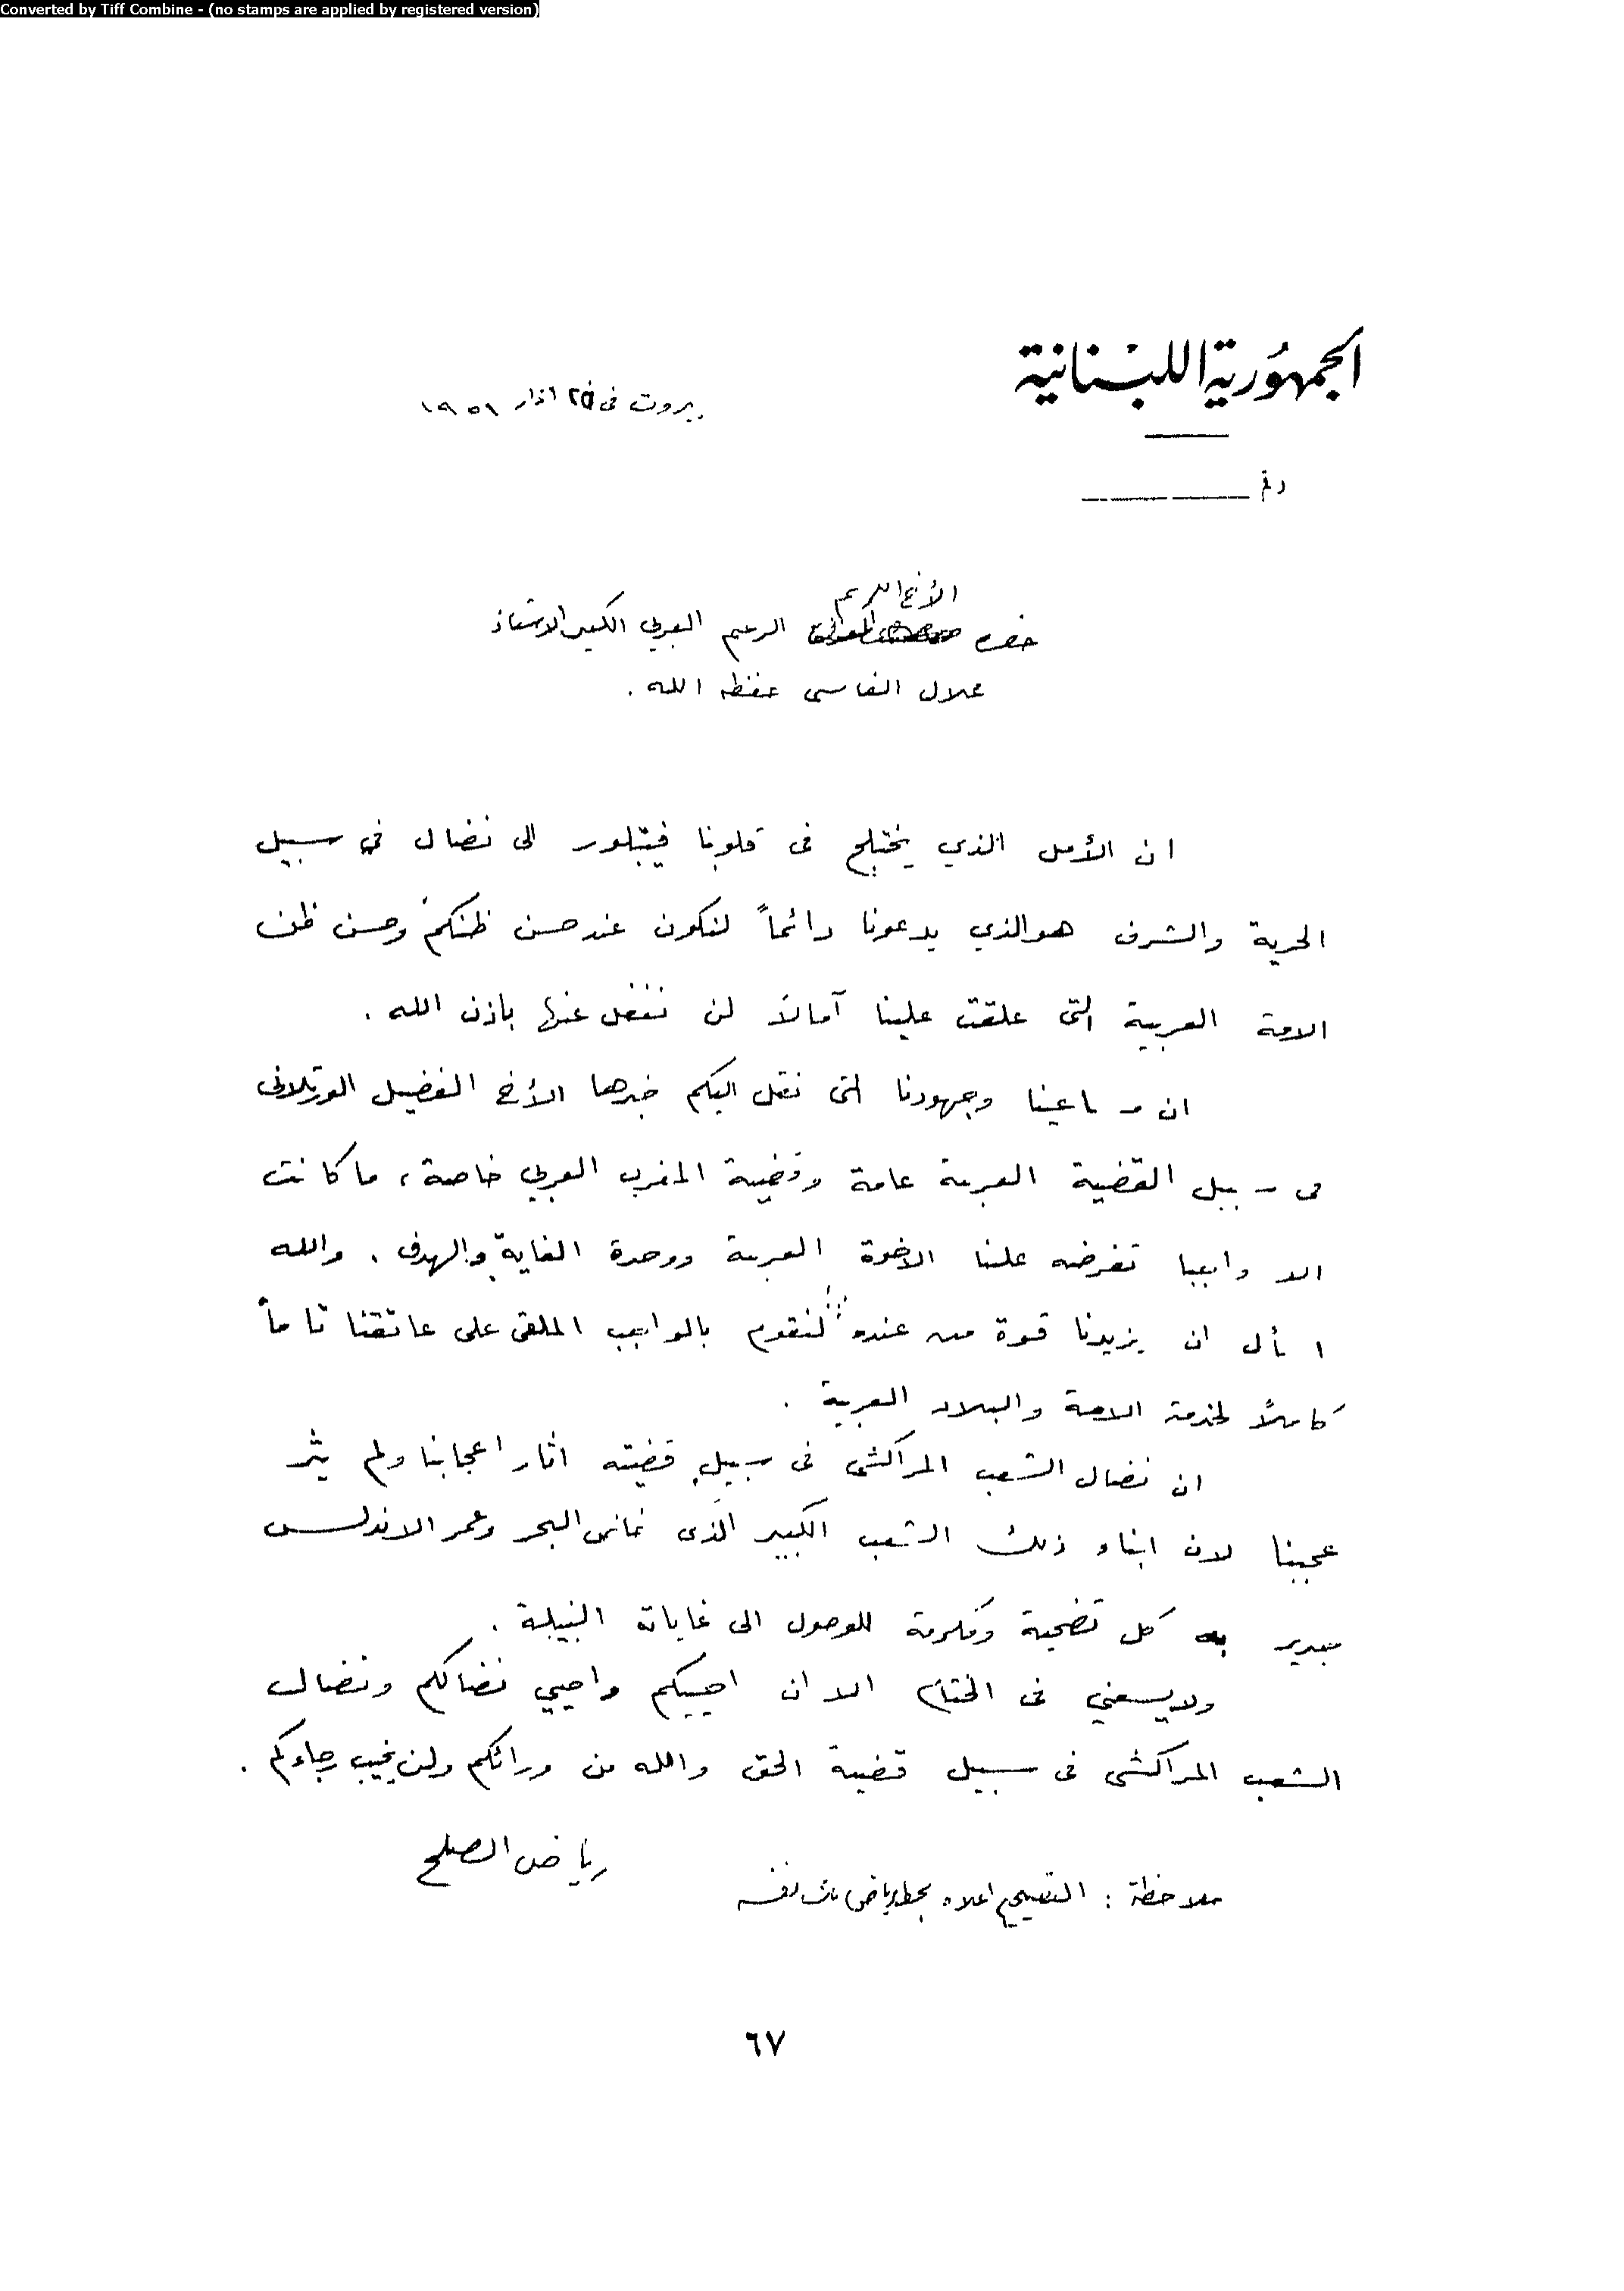 Converted by Tiff Combine - (no stamps are applied by registered version)
الجمهورية اللبنانية
بيروت في ٢٥ اذار ١٩٥١
رقم
الأخ الكريم
حضرة الزعيم العربي الكبير الاستاذ
علال الفاسي حفظه الله .
ان الأمل الذي يختلج في قلوبنا فيتبلور الى نضال في سبيل
الحرية والشرف هو الذي يدعونا دائماً لنكون عند حسن ظنكم وحسن ظن
الامة العربية التي علقت علينا آمالاً لن نغفل عنها باذن الله .
ان مساعينا وجهودنا التي نقل اليكم خبرها الأخ الفضيل الورتلاني
في سبيل القضية العربية عامة وقضية المغرب العربي خاصة، ما كانت
الا واجبا تفرضه علينا الاخوة العربية ووحدة الغاية والهدف . والله
اسأل ان يزيدنا قوة من عنده لنقوم بالواجب الملقى على عاتقنا تاماً
كاملاً لخدمة الامة والبلاد العربية .
ان نضال الشعب المراكشي في سبيل قضيته اثار اعجابنا ولم يثر
عجبنا لان ابناء ذلك الشعب الكبير الذي خاض البحر وعمر الاندلس
جدير به كل تضحية ومكرمة للوصول الى غاياته النبيلة .
ولا يسعني في الختام الا ان احييكم واحيي نضالكم ونضال
الشعب المراكشي في سبيل قضية الحق والله من ورائكم ولن يخيب رجاءكم .
رياض الصلح
ملاحظة : التصحيح اعلاه بخط رياض نفسه
٦٧